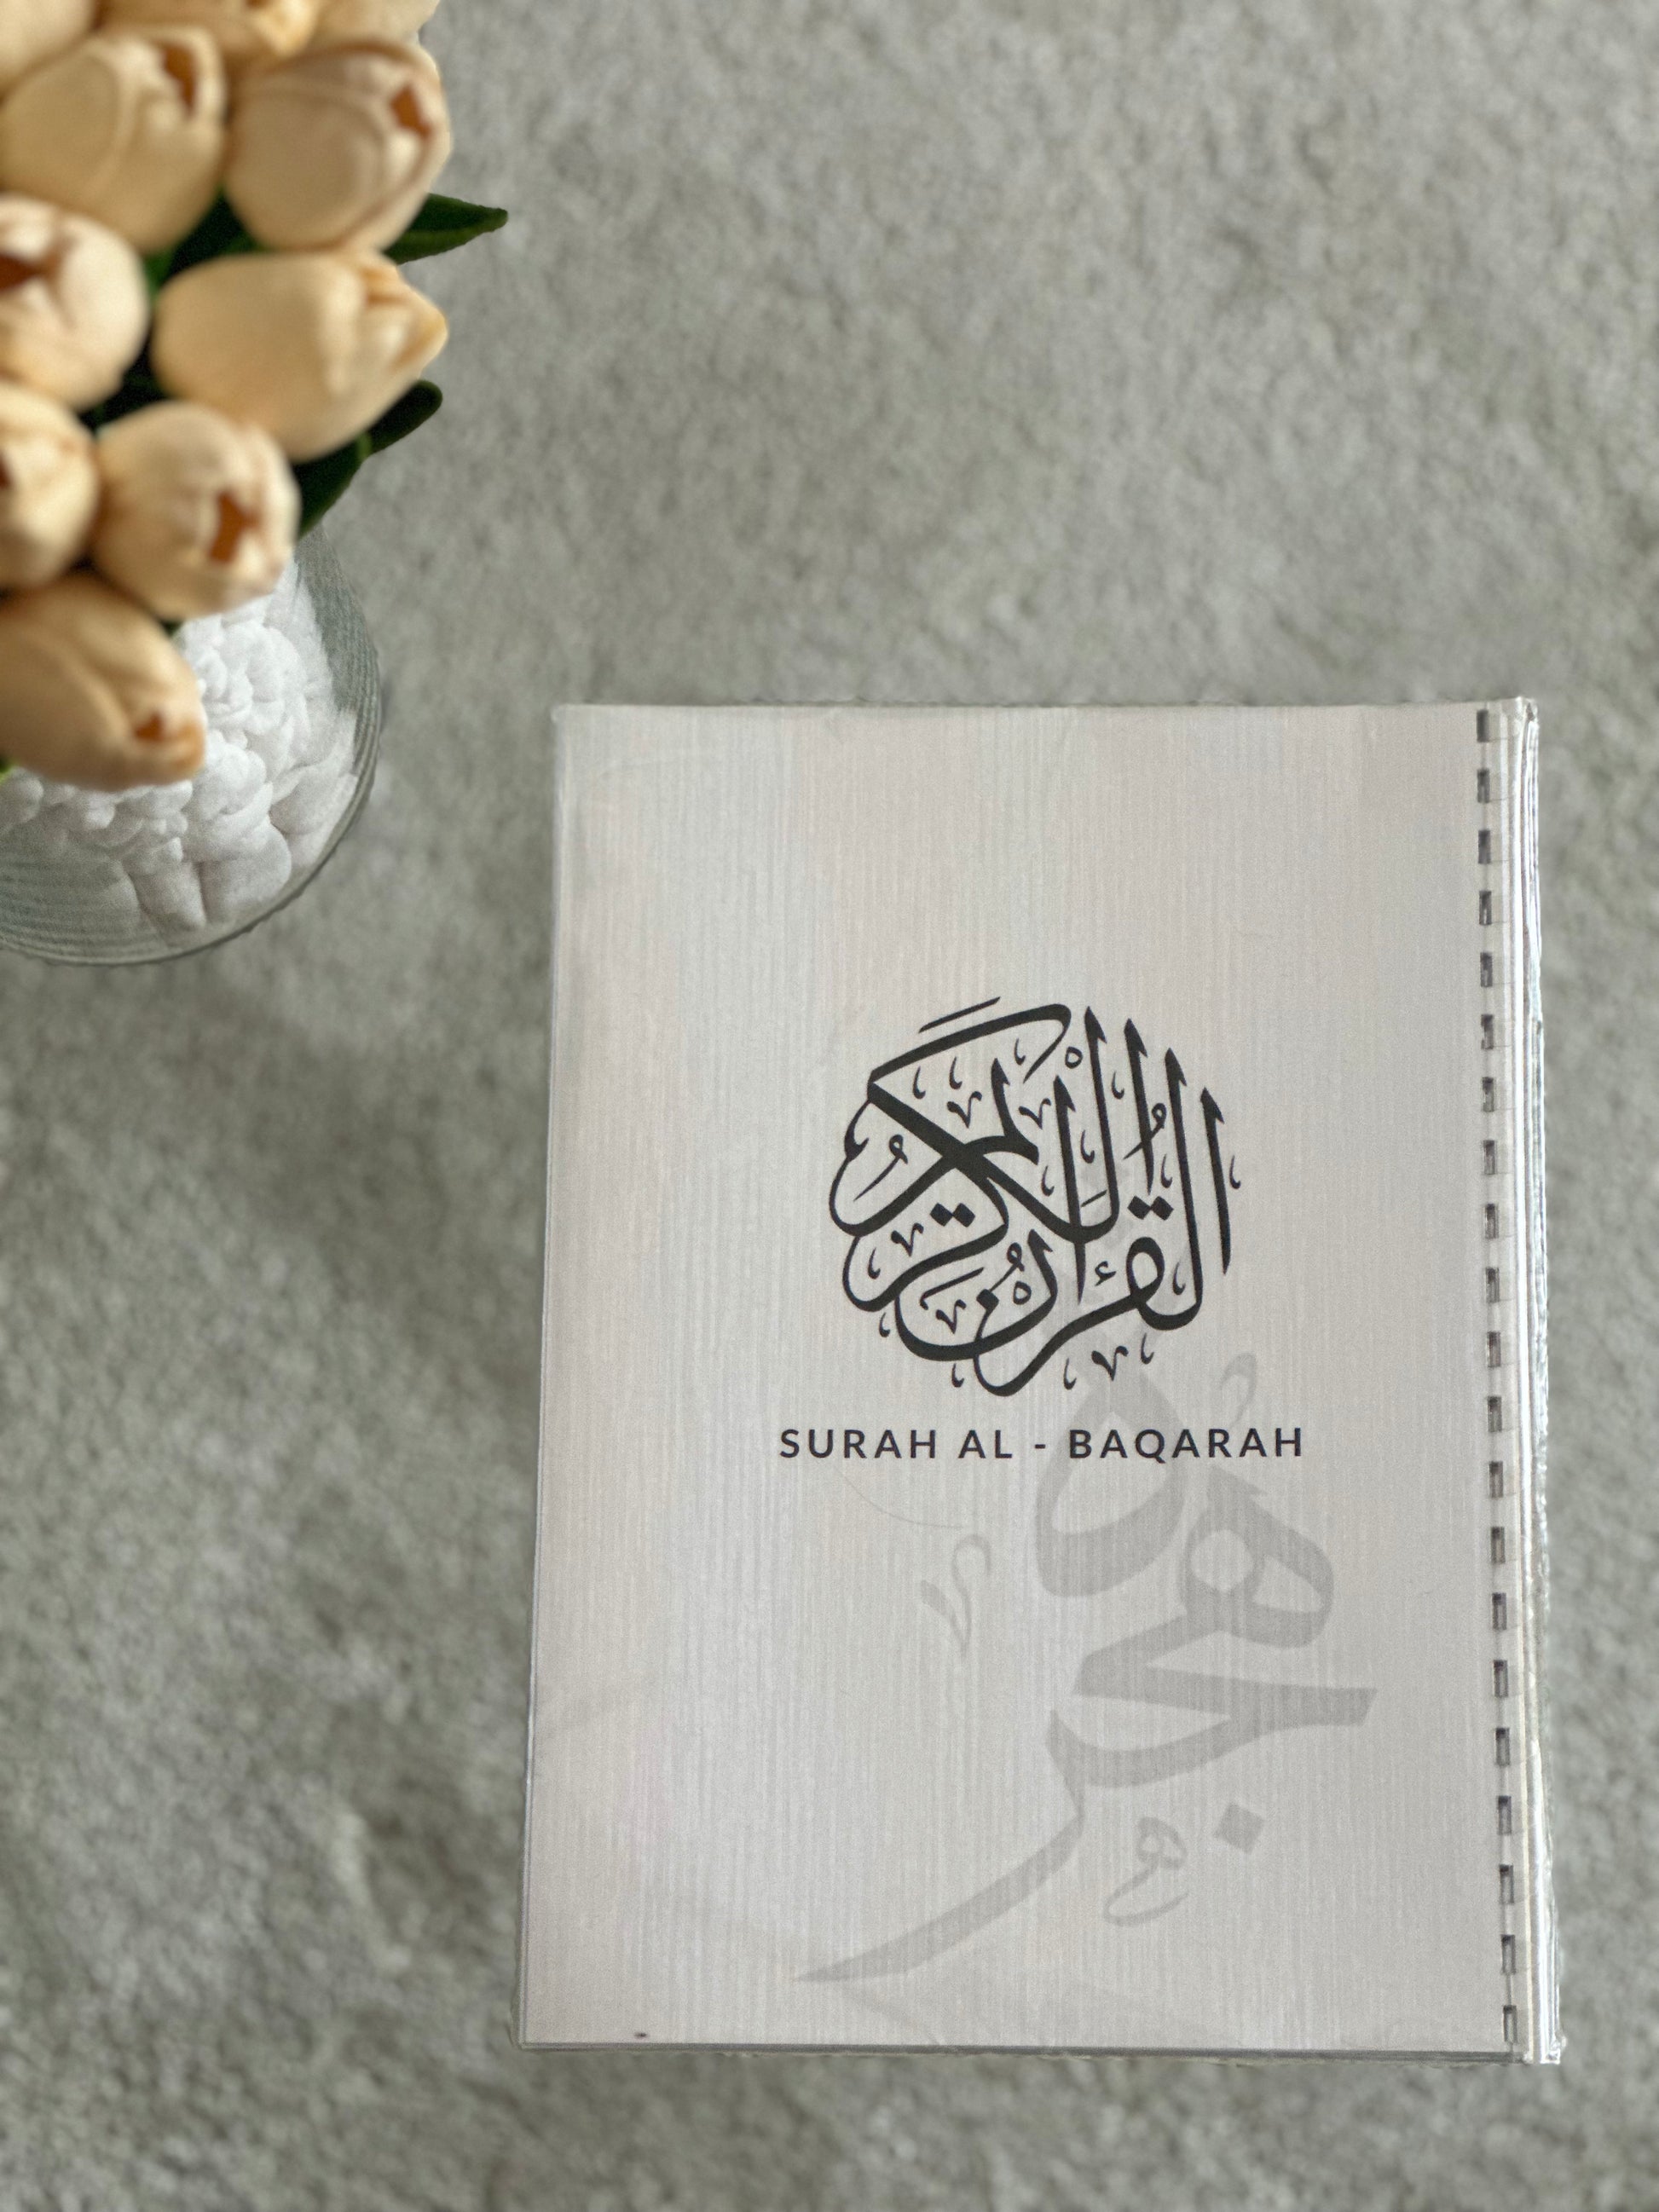 القُرْآنُ الْكَرِيمُ
SURAH AL - BAQARAH